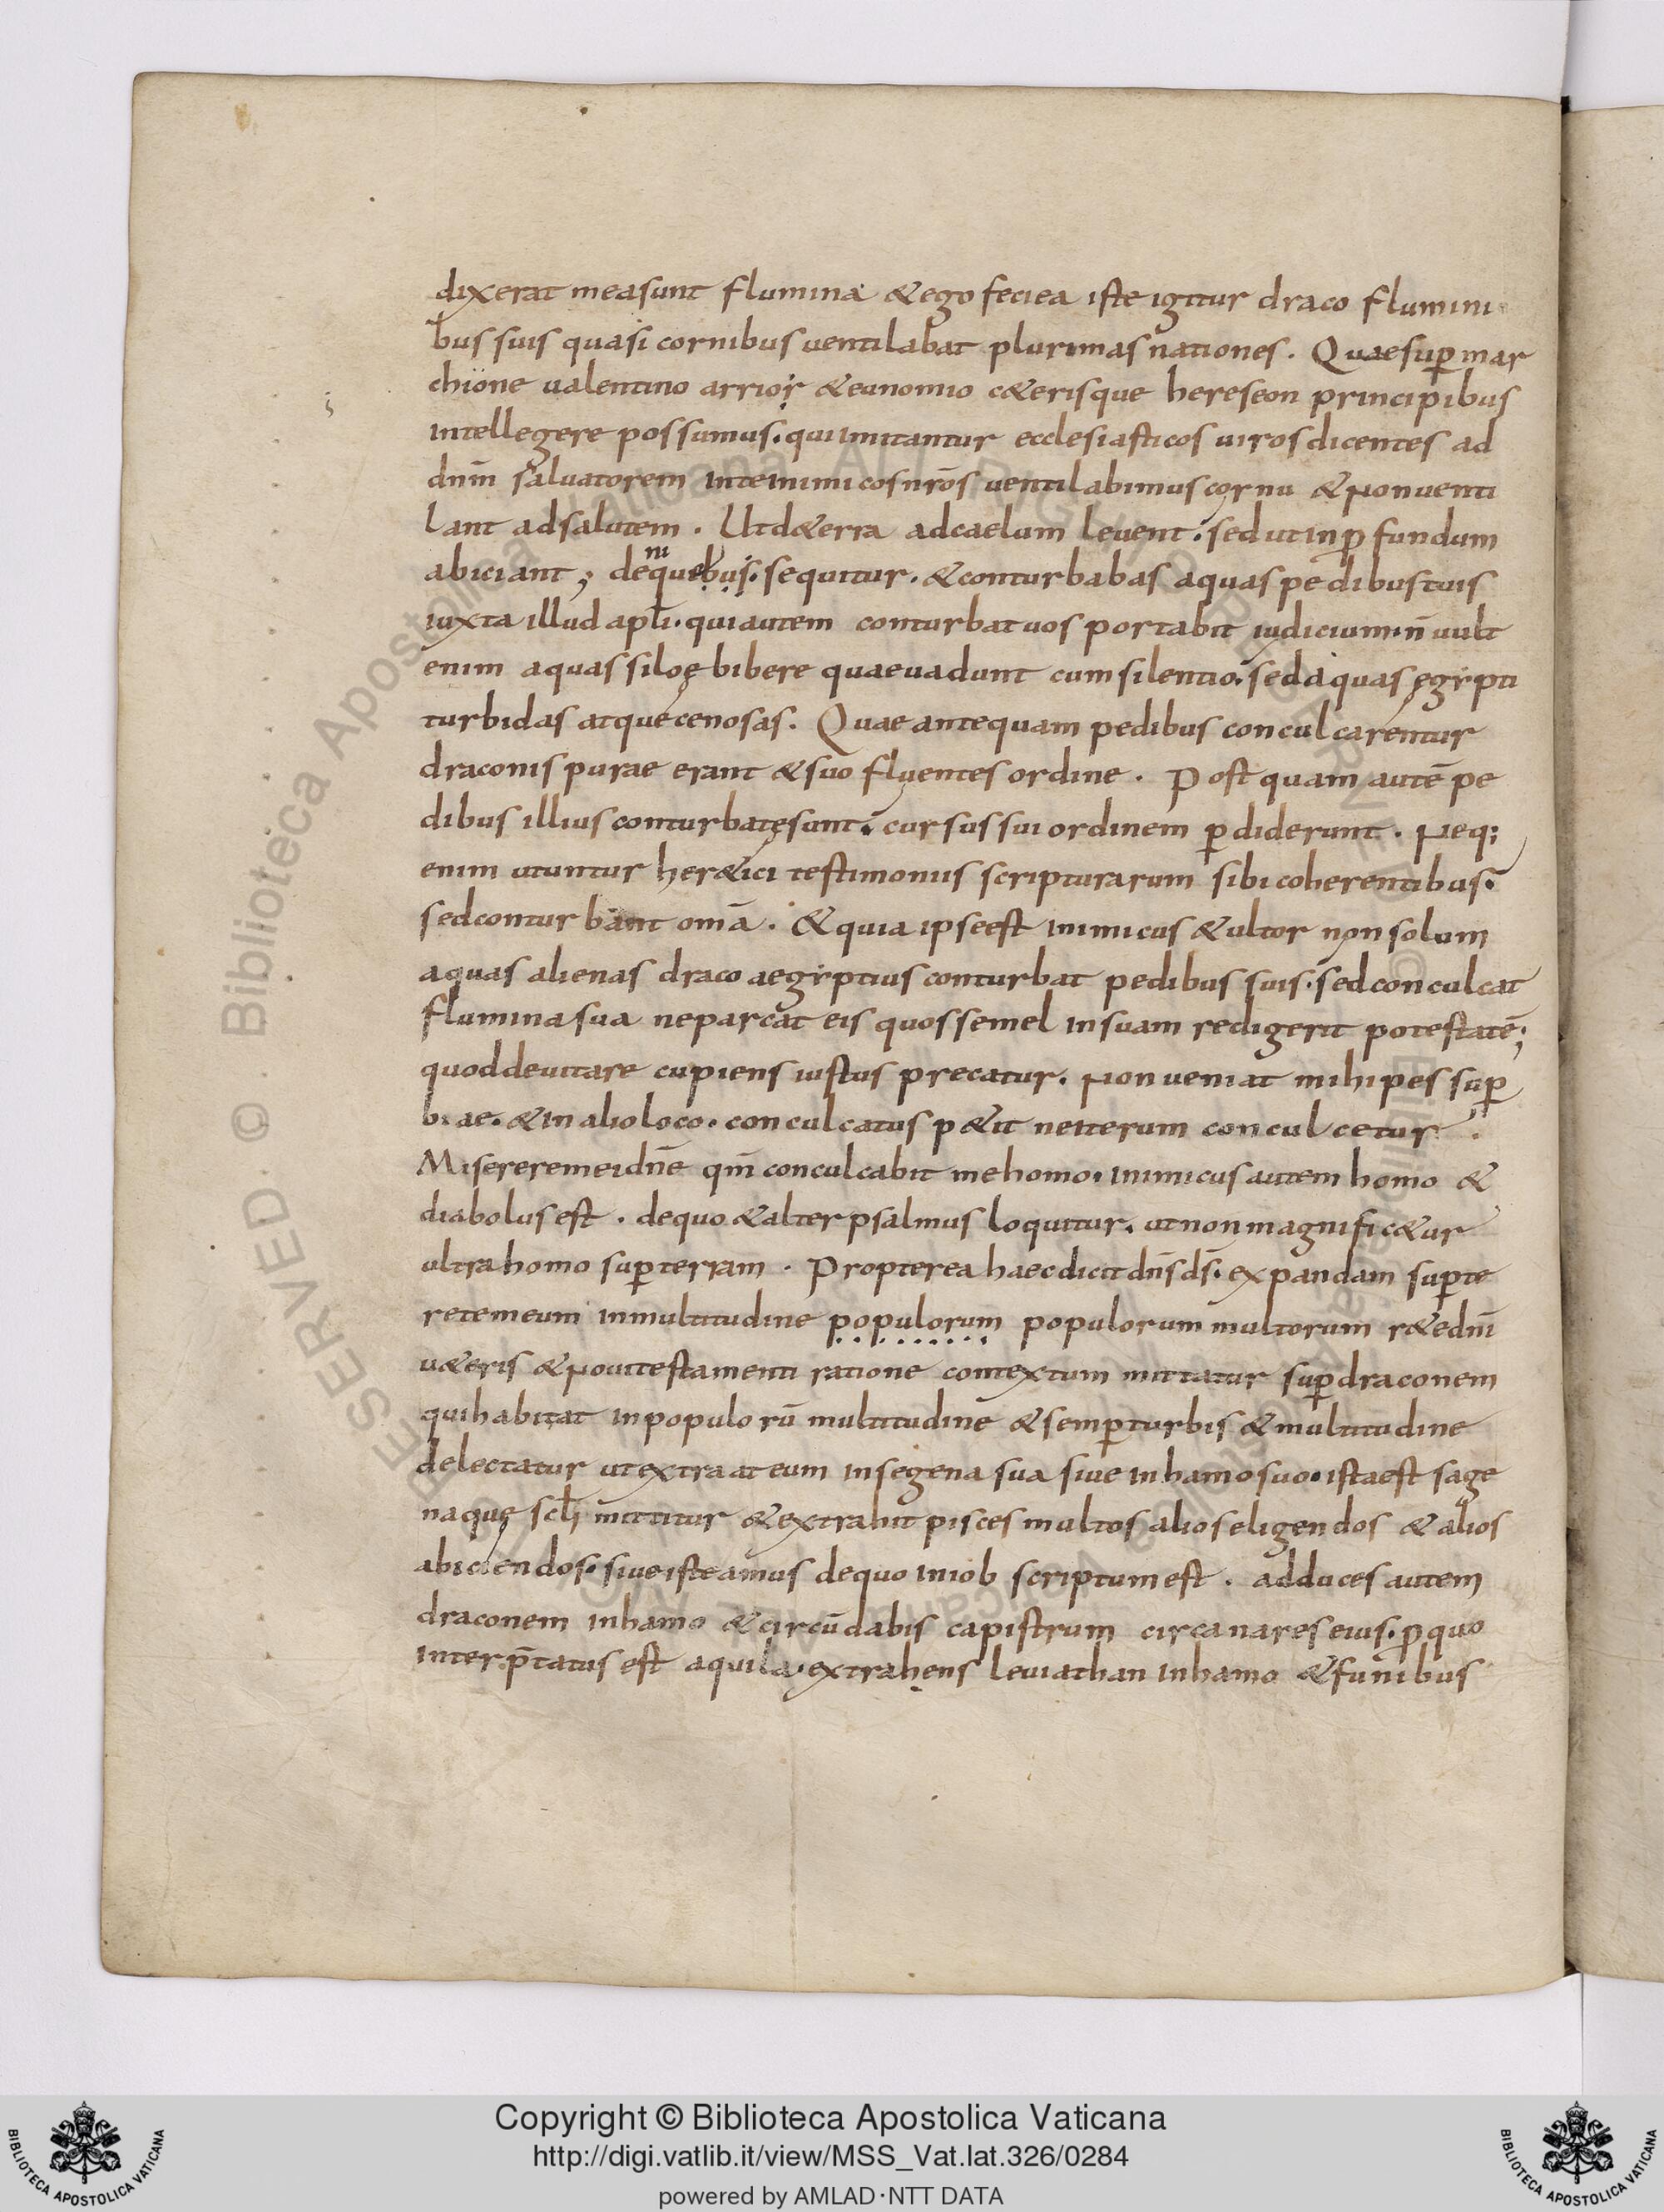 dixerat mea sunt flumina & ego feci ea iste igitur draco flumini
bus suis quasi cornibus uentilabat plurimas nationes. Quae sup̄ mar
chione ualentino arrior & eunomio c&erisque hereseon principibus
intellegere possumus. qui imitantur ecclesiasticos uiros dicentes ad
dn̄m saluatorem in te inimicos nr̄os uentilabimus cornu & non uenti
lant ad salutem. Ut d& erra ad caelum leuent. sed ut in ꝓfundum
abiciant; deni quebus. sequitur. & conturbabas aquas pedibus tuis
iuxta illud apl̄i. qui autem conturbat uos portabit iudicium. n̄ uult
enim aquas siloę bibere quae uadunt cum silentio. sed aquas ęgẏpti
turbidas atque cenosas. Quae antequam pedibus conculcarentur
draconis purae erant & suo fluentes ordine. Post quam autē pe
dibus illius conturbatę sunt. cursus sui ordinem ꝑdiderunt. Neq;
enim utuntur her&ici testimoniis scripturarum sibi coherentibus.
sed conturbant om̄a. & quia ipse est inimicus & ultor non solum
aquas alienas draco aegẏptius conturbat pedibus suis. sed conculcat
flumina sua ne parcat eis quos semel in suam redigerit potestatē;
quod deuitare cupiens iustus precatur. Non ueniat mihi pes suꝑ
biae. & in alio loco. conculcatus p&it ne iterum conculcetur.
Miserere mei dn̄e qm̄ conculcabit me homo. inimicus autem homo &
diabolus est. de quo & alter psalmus loquitur. ut non magnific&ur
ultra homo suꝑ terram. Propterea haec dicit dn̄s ds̄. expandam suꝑ te
rete meum in multitudine populorum populorum multorum r&e dn̄i
u&eris & noui testamenti ratione contextum mittatur suꝑ draconem
qui habitat in populorū multitudine & semꝑ turbis & multitudine
delectatur ut extraat eum in segena sua siue in hamo suo. ista est sage
na quę scl̄i mittitur & extrahit pisces multos alios eligendos & alios
abiciendos. siue iste amus de quo in iob scriptum est. adduces autem
draconem in hamo & circūdabis capistrum circa nares eius. ꝑ quo
interp̄tatus est aquila. extrahens leuiathan in hamo & funibus
Copyright © Biblioteca Apostolica Vaticana
http://digi.vatlib.it/view/MSS_Vat.lat.326/0284
powered by AMLAD·NTT DATA
BIBLIOTECA APOSTOLICA VATICANA
BIBLIOTECA APOSTOLICA VATICANA